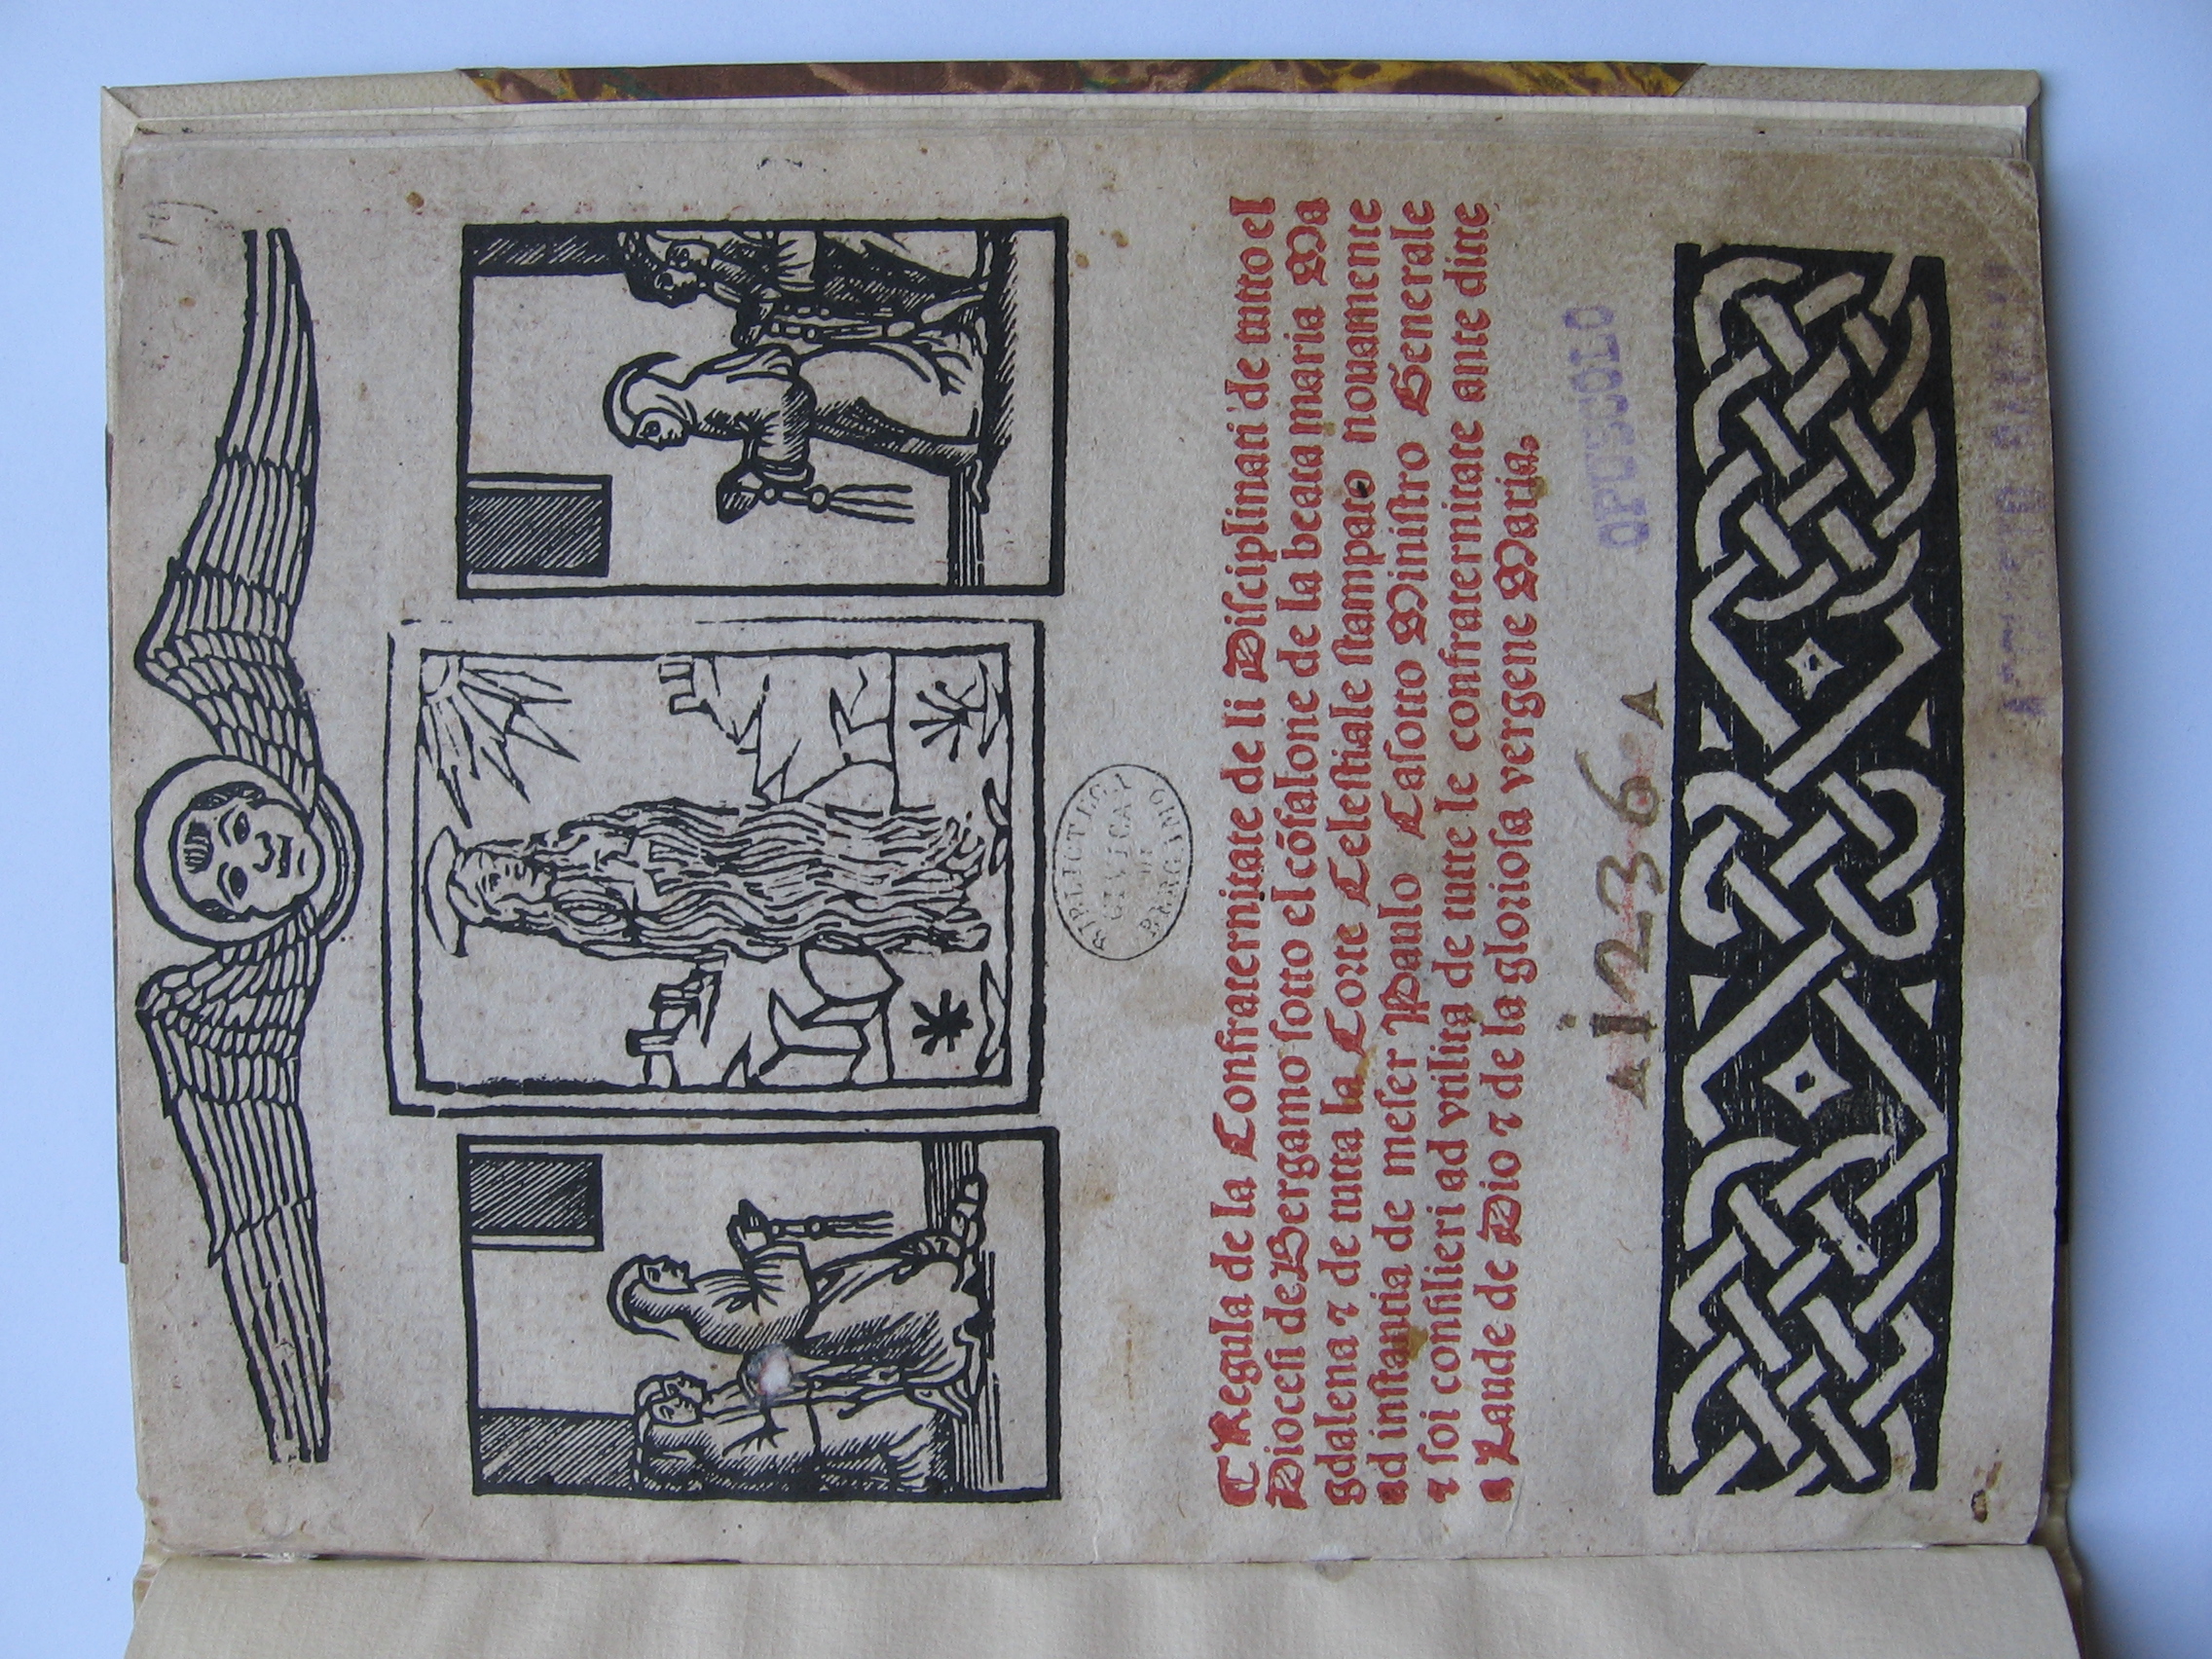 BIBLIOTECA
CIVICA
DI
BERGAMO
¶ Regula de la Confraternitate de li Disciplinati de tutto el
Diocesi de Bergamo sotto el cõfalone de la beata maria Ma
gdalena ⁊ de tutta la Corte Celestiale stampato nouamente
ad instantia de meser Paulo Casotto Ministro Generale
⁊ soi consilieri ad vtilita de tutte le confraternitate ante ditte
a Laude de Dio ⁊ de la gloriosa vergene Maria.
OPUSCOLO
1236